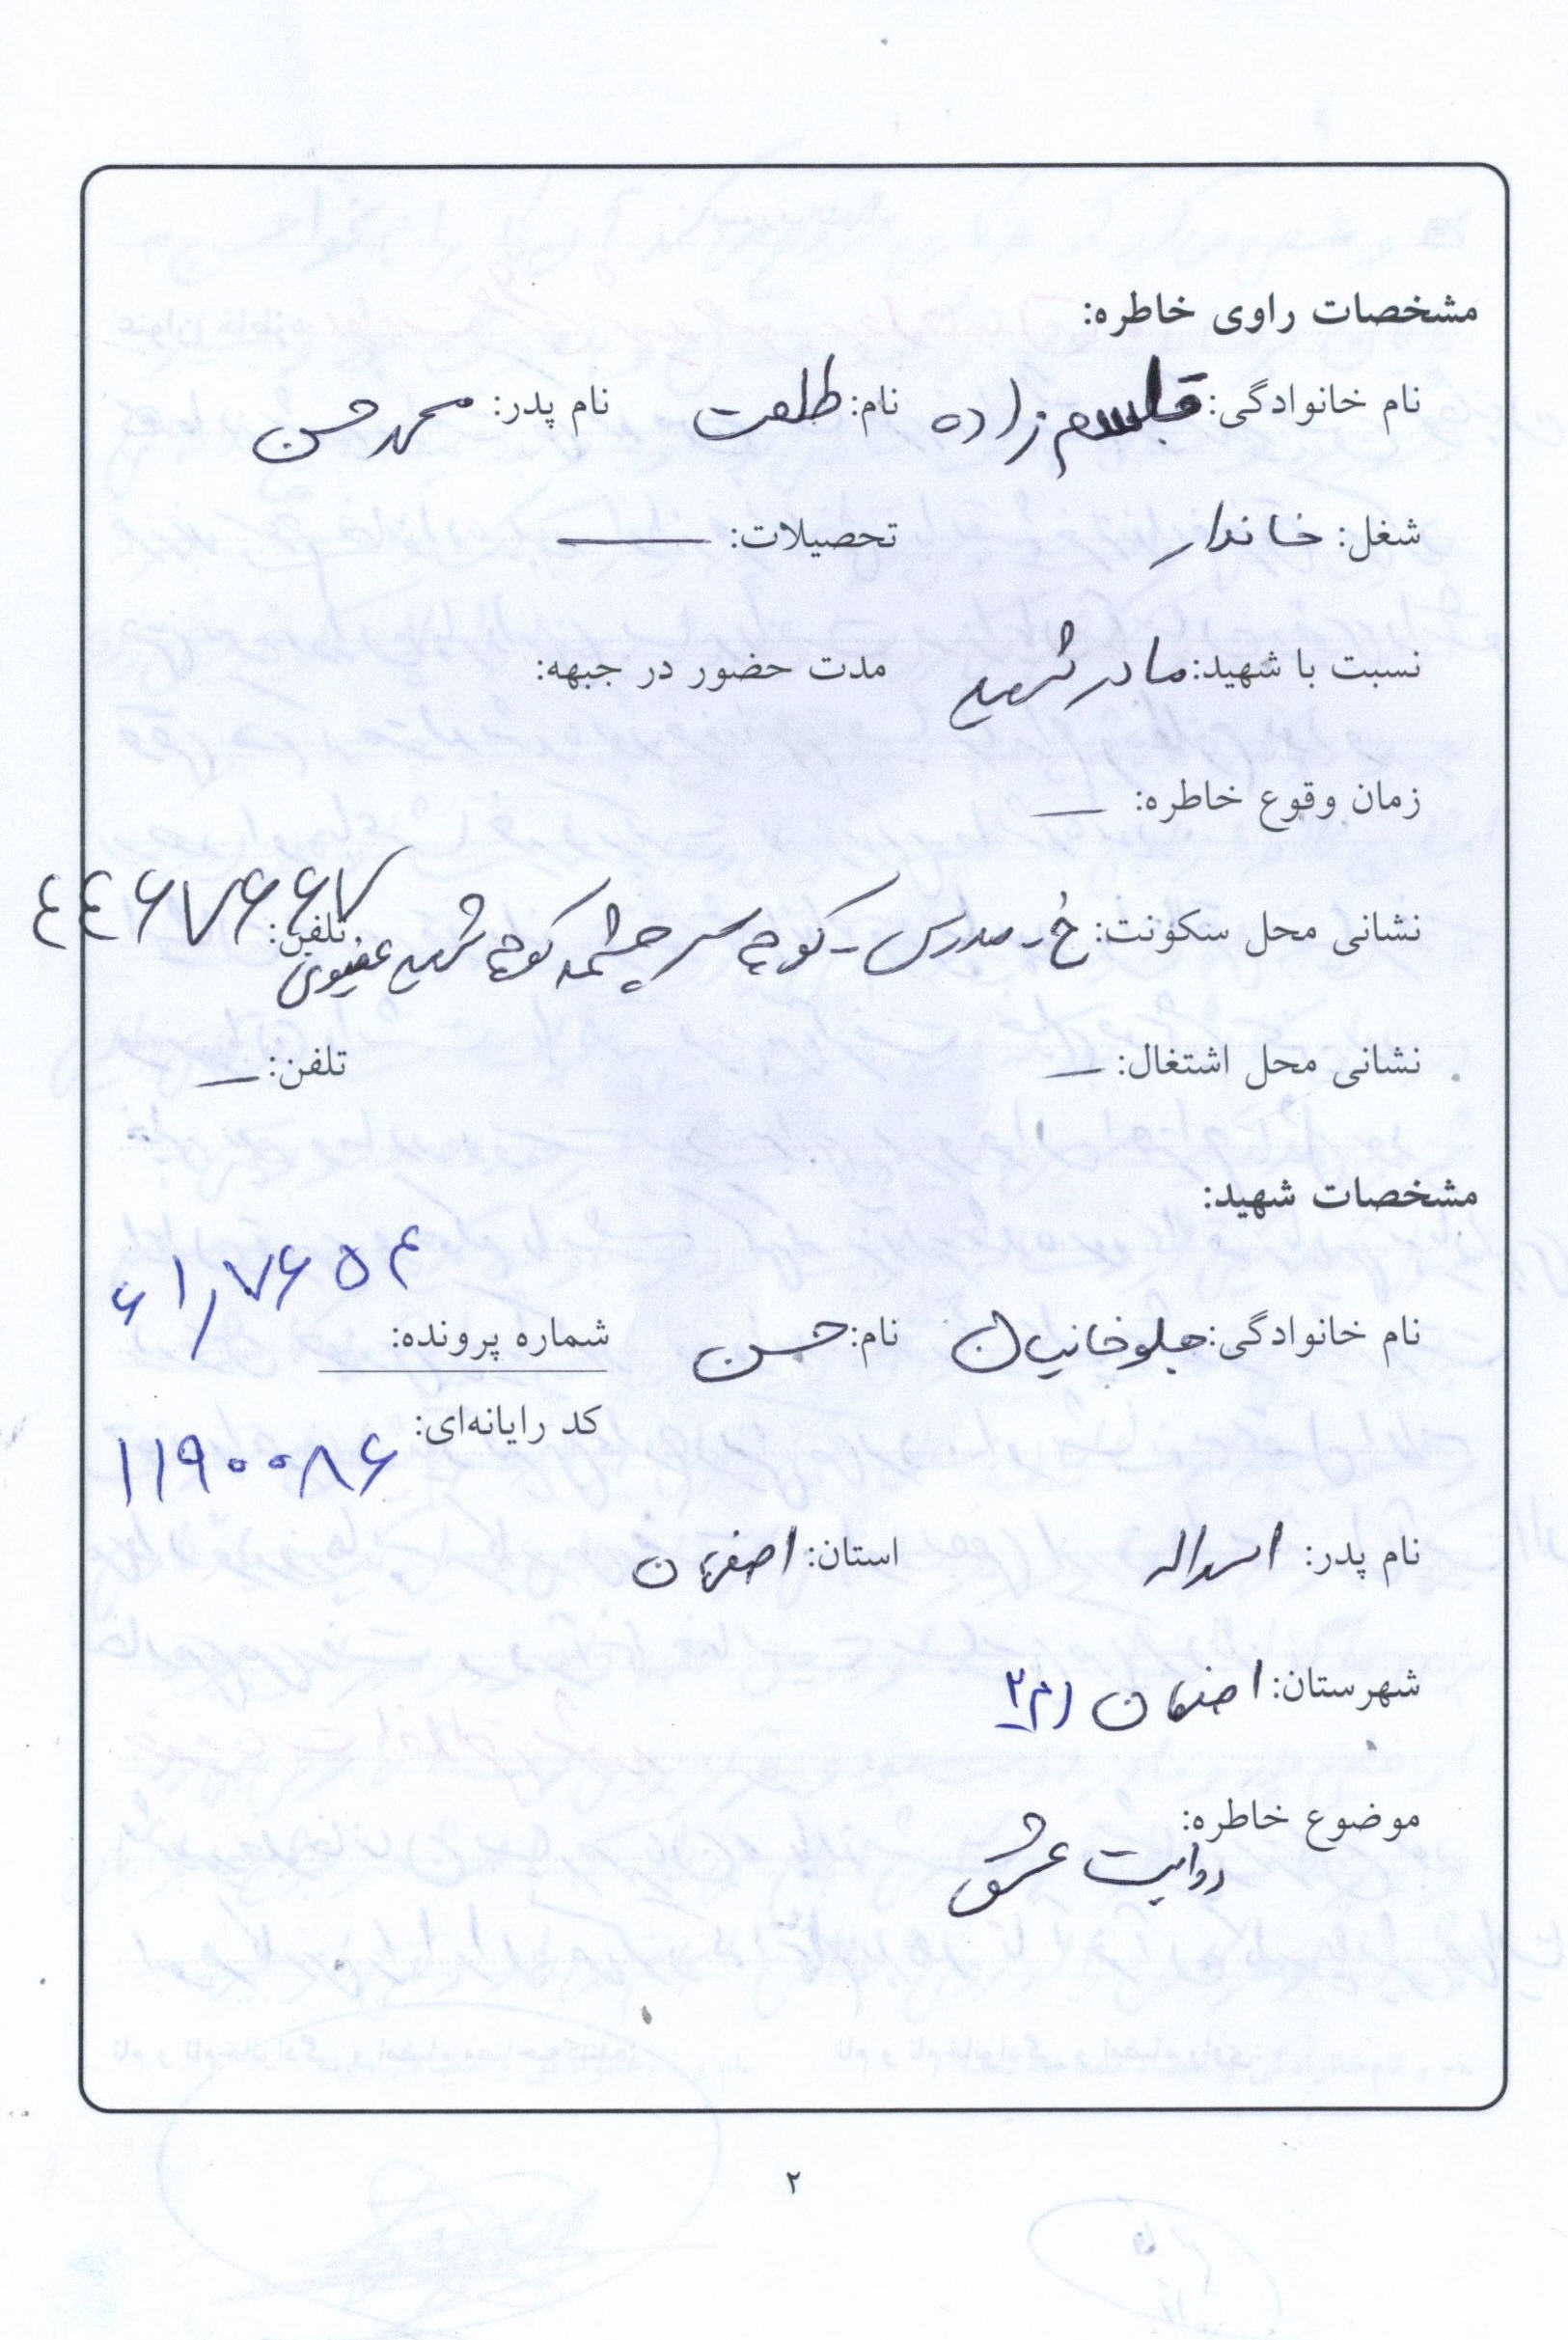 مشخصات راوی خاطره:
نام خانوادگی: قاسم زاده نام: طلعت نام پدر: محمدحسن
شغل: خاندار تحصیلات: —
نسبت با شهید: مادر شهید مدت حضور در جبهه:
زمان وقوع خاطره: —
نشانی محل سکونت: خ - مدرس - کوچه سرچشمه کوچه شهید تلفن: ٤٤۶۷۶۶۷
نشانی محل اشتغال: — تلفن: —
مشخصات شهید:
نام خانوادگی: جلوخانیان نام: حسن شماره پرونده:
کد رایانه‌ای: ۱۱۹۰۰۸۶
نام پدر: اسداله استان: اصفهان
شهرستان: اصفهان
موضوع خاطره:
روایت عشق
۲